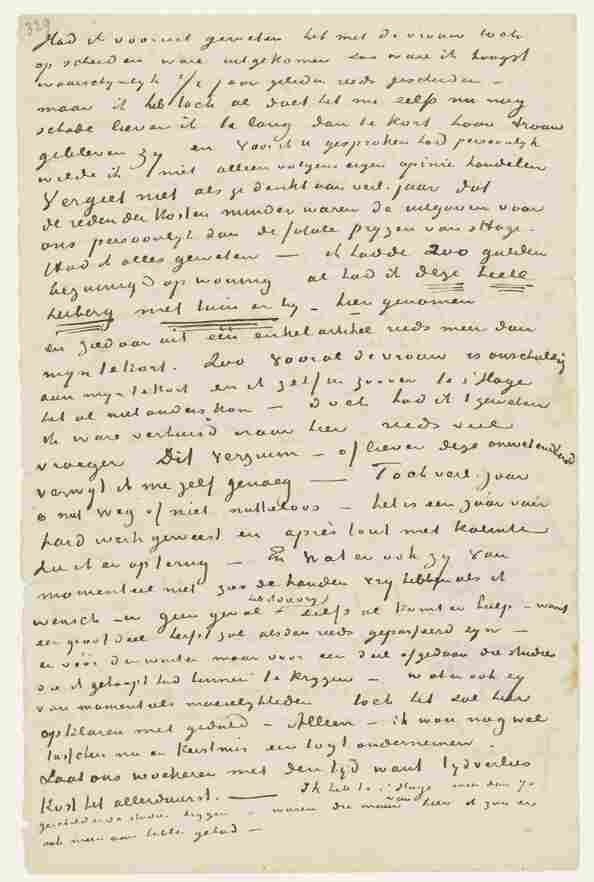 329
Had ik vooruit geweten het met de vrouw toch
op scheiden ware uitgekomen dan ware ik hoogst
waarschynlyk 1/2 jaar geleden reeds gescheiden –
maar ik heb toch al doet het me zelfs nu nog
schade liever ik te lang dan te kort haar trouw
gebleven zy en voor ik u gesproken had persoonlyk
wilde ik niet alleen volgens eigen opinie handelen
Vergeet niet als ge denkt aan verl. jaar dat
de reden der kosten minder waren de uitgaven voor
ons persoonlyk dan de fatale pryzen van s Hage.
Had ik alles geweten — ik hadde 200 gulden
bezuinigd op woning al had ik deze heele
herberg met tuin er by – hier genomen
en ziedaar uit één enkel artikel reeds meer dan
myn tekort. 200 vooral de vrouw is onschuldig
aan myn tekort en ik zelf in zoover te s'Hage
het al niet anders kon – doch had ik 't geweten
ik ware verhuisd naar hier reeds veel
vroeger Dit verzuim – of liever deze onwetendheid
verwyt ik me zelf genoeg — Toch verl. jaar
is niet weg of niet nutteloos – het is een jaar van
hard werk geweest en après tout met kalmte
zie ik er op terug – En wat er ook zy van
momenteel niet zoo de handen vry hebben als ik
wensch – in geen geval zelfs al komt er hulp – want
een groot deel herfst zal alsdan reeds gepasseerd zyn –
er vóór den winter maar voor een deel afgedaan die studies
die ik gehoopt had kunnen te krygen – wat er ook zy
van momenteele moeielykheden toch het zal hier
opklaren met geduld – Alleen – ik wou nog wel
tusschen nu en Kerstmis een togt ondernemen.
Laat ons woekeren met den tyd want tydverlies
kost het allerduurst. — Ik heb te s'Hage meer dan 70
geschilderde studies liggen – waren die maar van hier ik zou er
ook meer aan hebben gehad –